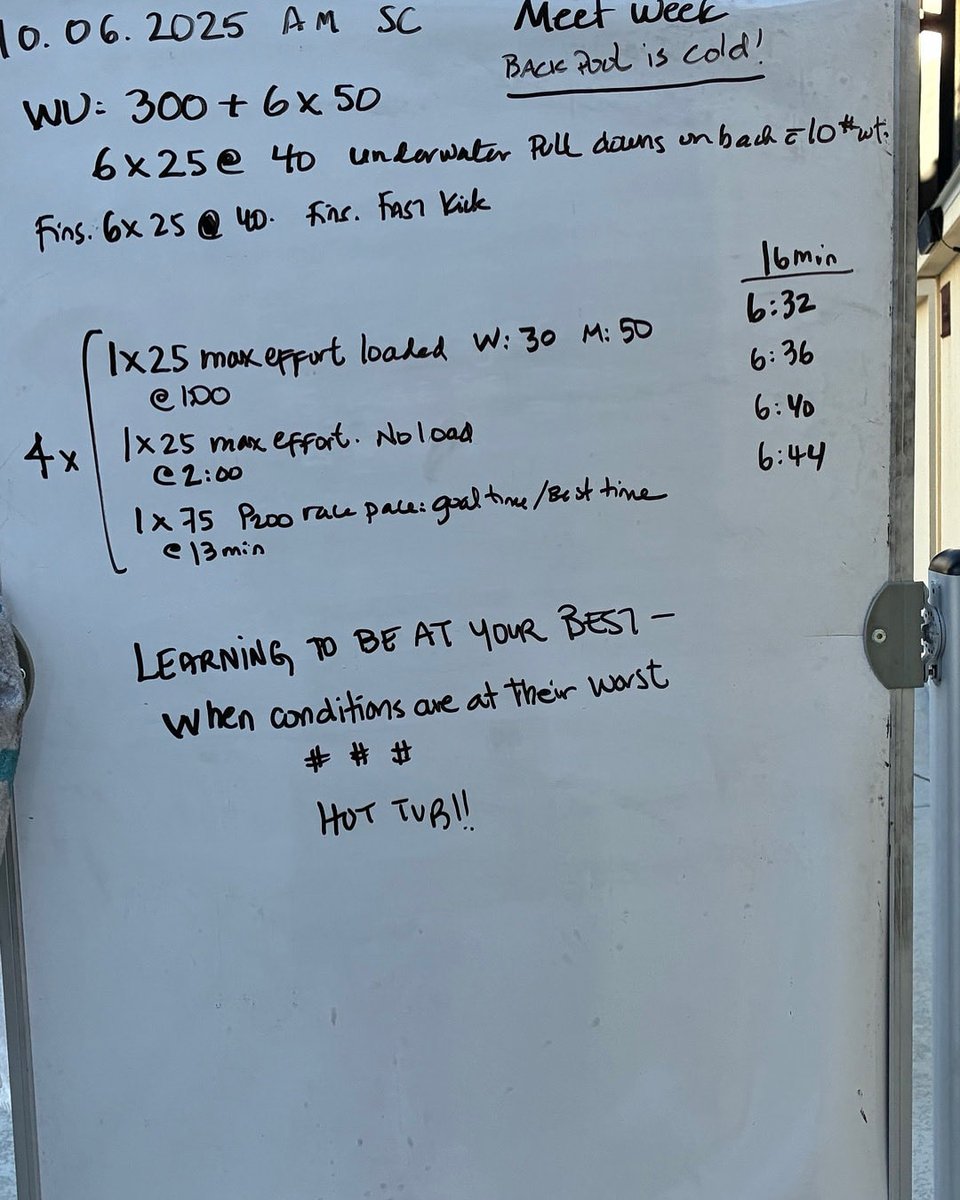 10.06.2025 AM SC Meet Week
BACK Pool is cold!
WU: 300 + 6 x 50
6 x 25 @ 40 underwater Pull downs on back c̄ 10# wt.
Fins. 6x 25 @ 40. Fins. FAST Kick
16min
6:32
6:36
6:40
6:44
4x
1x25 max effort loaded W: 30 M: 50
@ 1:00
1x25 max effort. No load
@ 2:00
1 x 75 P200 race pace: goal time/Best time
@ 13 min
LEARNING TO BE AT YOUR BEST -
When conditions are at their worst
# # #
HOT TUB!!